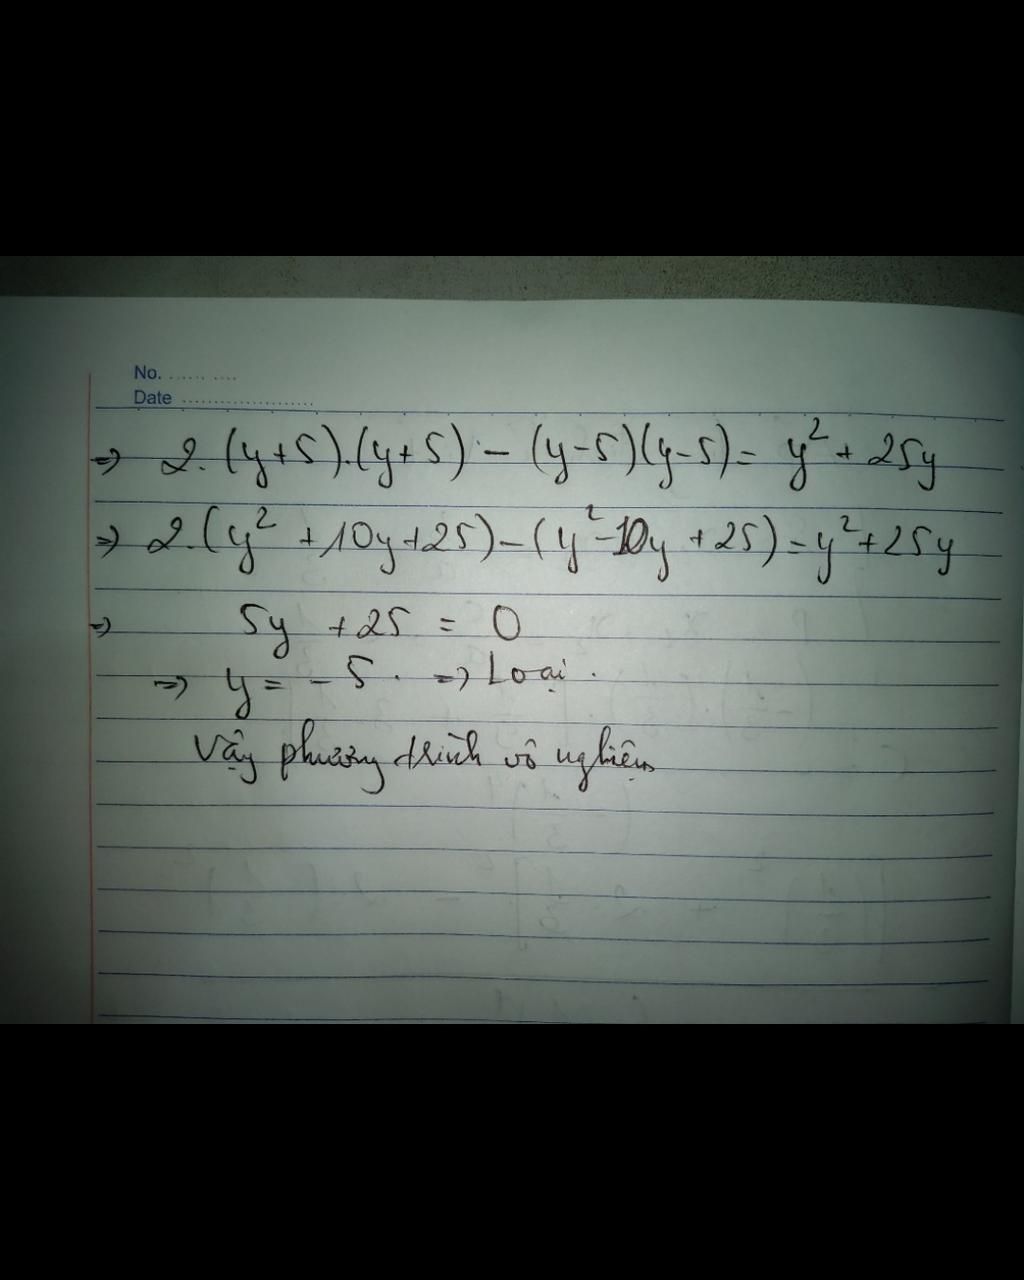 No. ...... ....
Date ......................
=> 2.(y+5).(y+5) - (y-5)(y-5) = y² + 25y
=> 2.(y² + 10y + 25) - (y² - 10y + 25) = y² + 25y
=> 5y + 25 = 0
=> y = - 5 . => Loại .
Vậy phương trình vô nghiệm